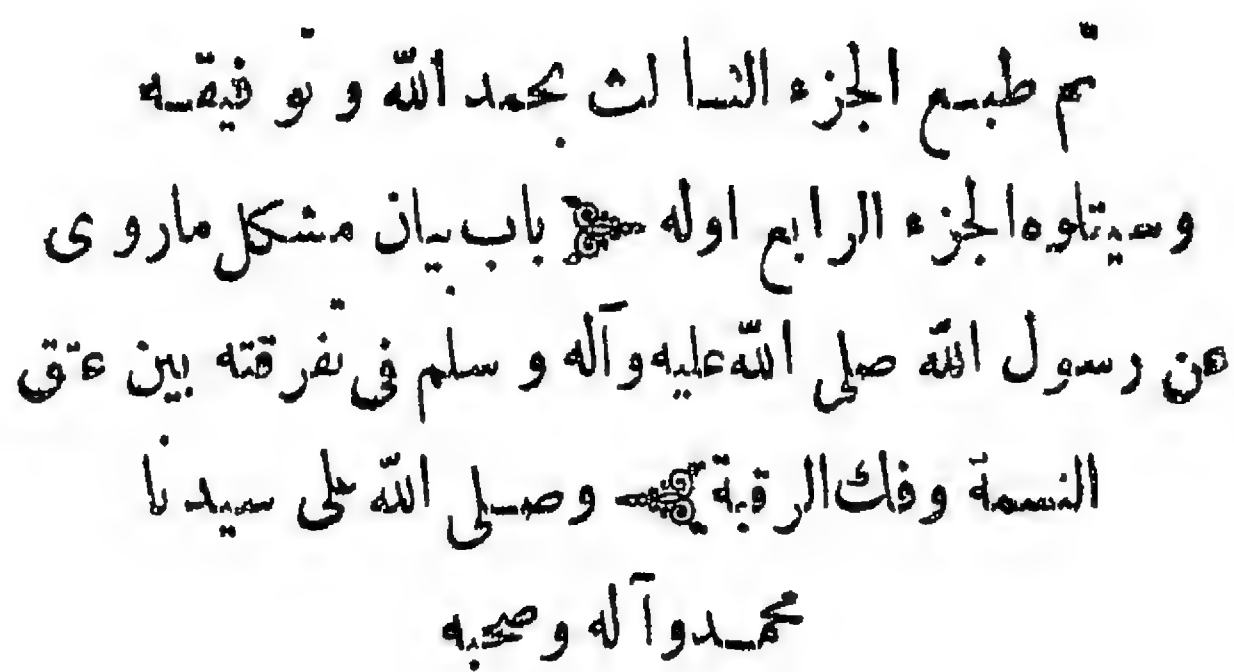 تم طبع الجزء الثالث بحمد الله و توفيقه
وسيتلوه الجزء الرابع اوله ﴿ باب بيان مشكل ما روى
عن رسول الله صلى الله عليه وآله وسلم فى تفرقته بين عتق
النسمة وفك الرقبة ﴾ وصلى الله على سيدنا
محمد وآله وصحبه